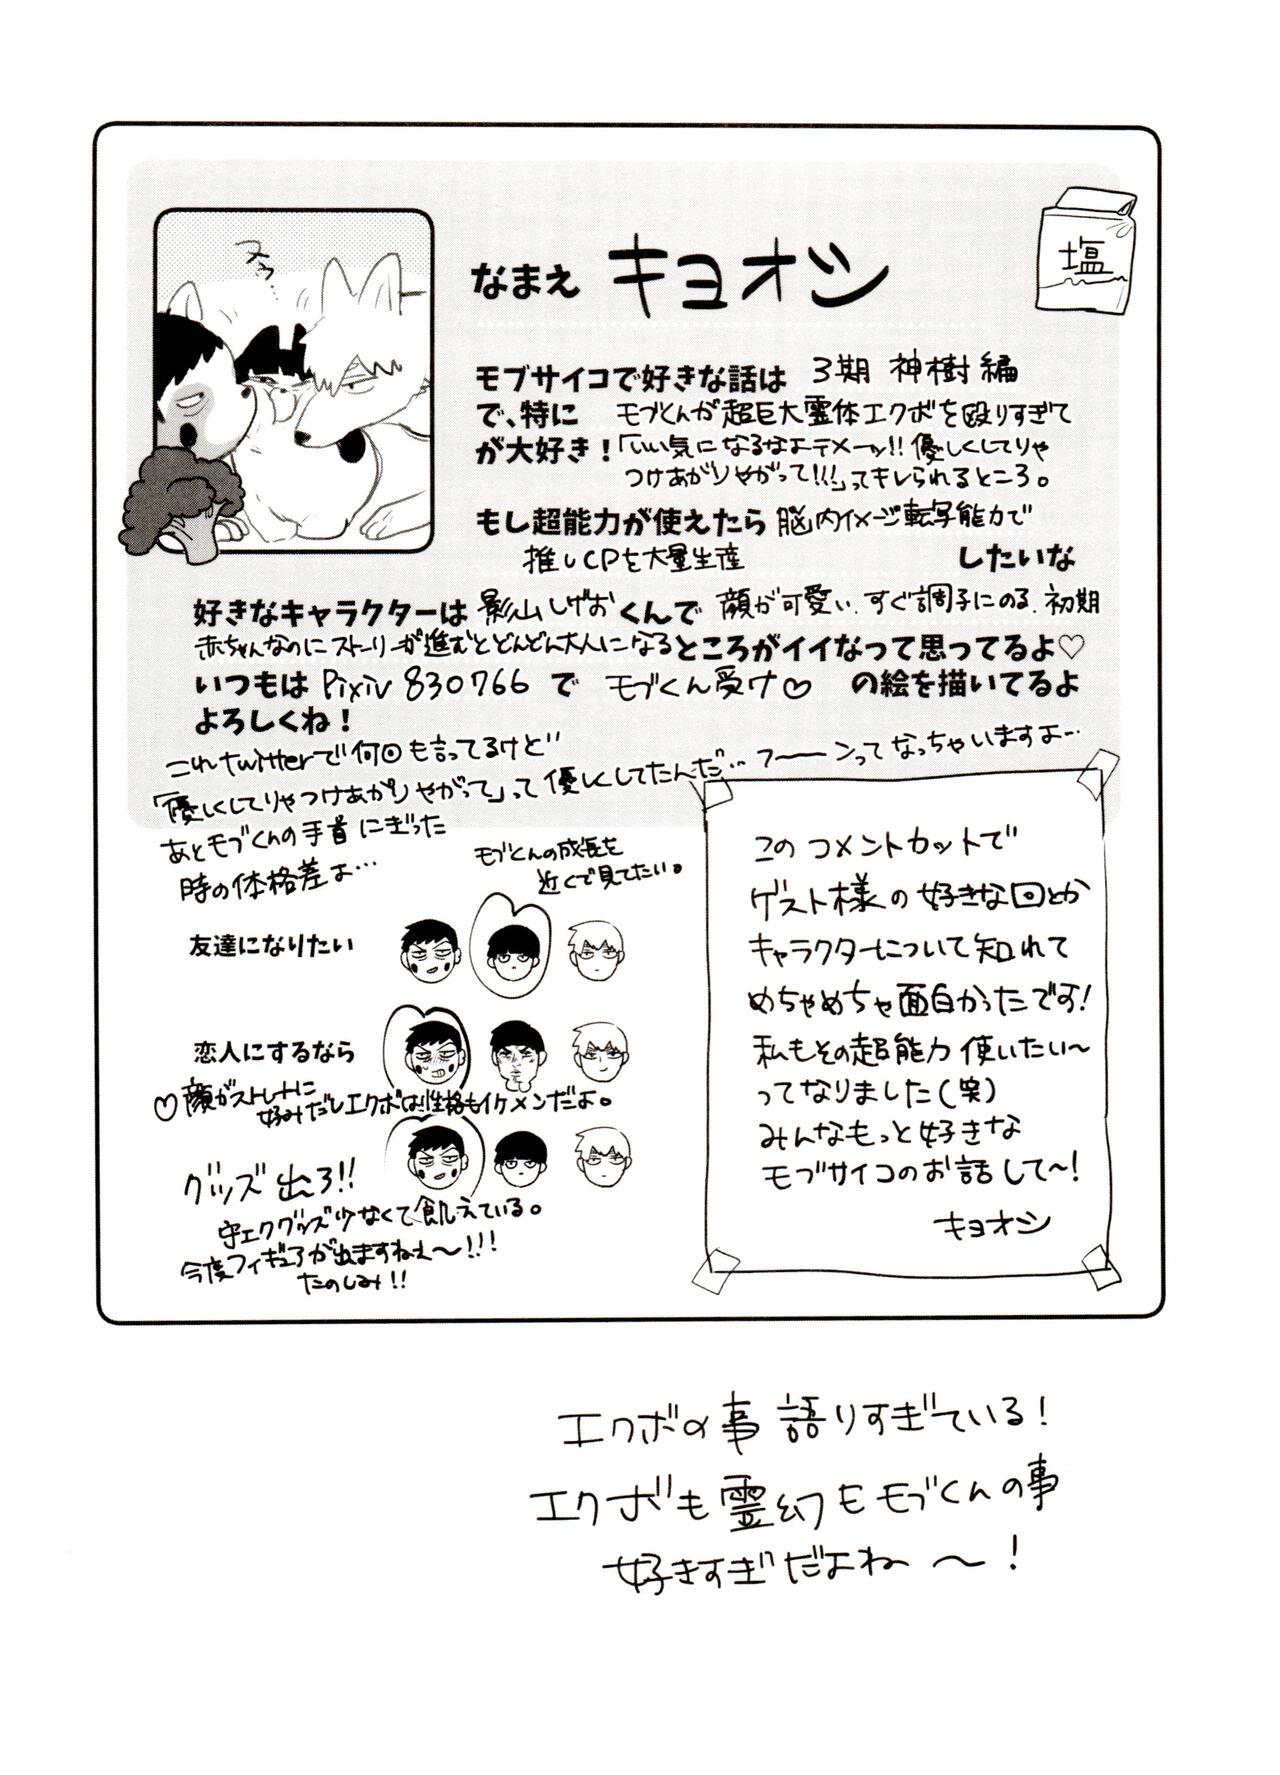 ヌゥ…
なまえ キヨオシ
塩
モブサイコで好きな話は 3期 神樹編
で、特に モブくんが超巨大霊体エクボを殴りすぎて
が大好き！「いい気になるなよテメーッ!! 優しくしてりゃ
つけあがりやがって!!!」ってキレられるところ。
もし超能力が使えたら 脳内イメージ転写能力で
推しCPを大量生産 したいな
好きなキャラクターは 影山しげおくんで 顔が可愛い、すぐ調子にのる、初期
赤ちゃんなのにストーリーが進むとどんどん大人になるところがイイなって思ってるよ♡
いつもは Pixiv 830766 で モブくん受け♡ の絵を描いてるよ
よろしくね！
これtwitterで何回も言ってるけど
「優しくしてりゃつけあがりやがって」って優しくしてたんだ… フーーンってなっちゃいますよ…
あとモブくんの手首にぎった
時の体格差よ…
モブくんの成長を
近くで見てたい。
友達になりたい
恋人にするなら
♡顔がストレートに
好みだしエクボは性格もイケメンだよ。
グッズ出ろ!!
守エクグッズ少なくて飢えている。
今度フィギュアが出ますねぇ〜!!!
たのしみ!!
このコメントカットで
ゲスト様の好きな回とか
キャラクターについて知れて
めちゃめちゃ面白かったです!
私もその超能力使いたい〜
ってなりました(笑)
みんなもっと好きな
モブサイコのお話して〜!
キヨオシ
エクボの事語りすぎている!
エクボも霊幻もモブくんの事
好きすぎだよね〜!